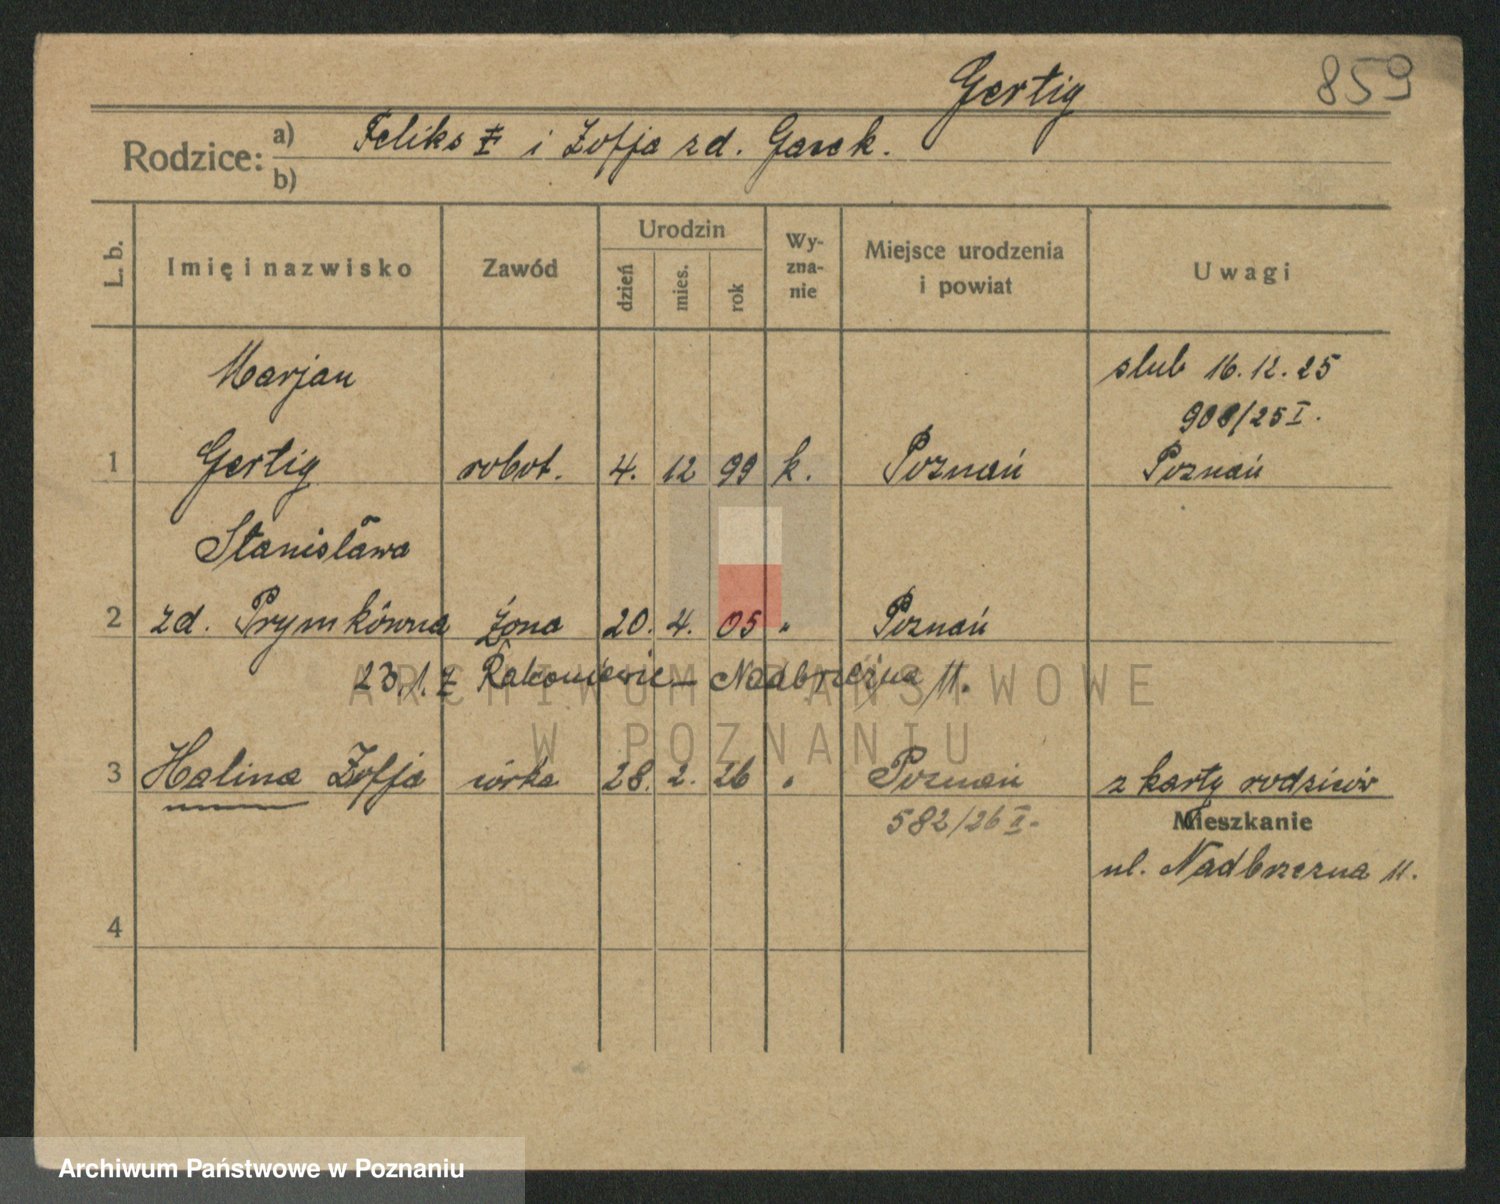 Gertig 859
Rodzice: a) Feliks ‡ i Zofja zd. Gasek.
b)
L. b. Imię i nazwisko Zawód Urodzin dzień mies. rok Wy-zna-nie Miejsce urodzenia i powiat Uwagi
Marjan ślub 16.12.25
900/25 I.
1 Gertig robot. 4. 12 99 k. Poznań Poznań
Stanisława
2 zd. Prymkówna żona 20. 4. 05 " Poznań
23.1. z Rakoniewic – Nadbrzeżna 11.
ARCHIWUM PAŃSTWOWE
W POZNANIU
3 Halina Zofja córka 28. 2. 26 " Poznań z karty rodziców
582/26 I. Mieszkanie
ul. Nadbrzezna 11.
4
Archiwum Państwowe w Poznaniu